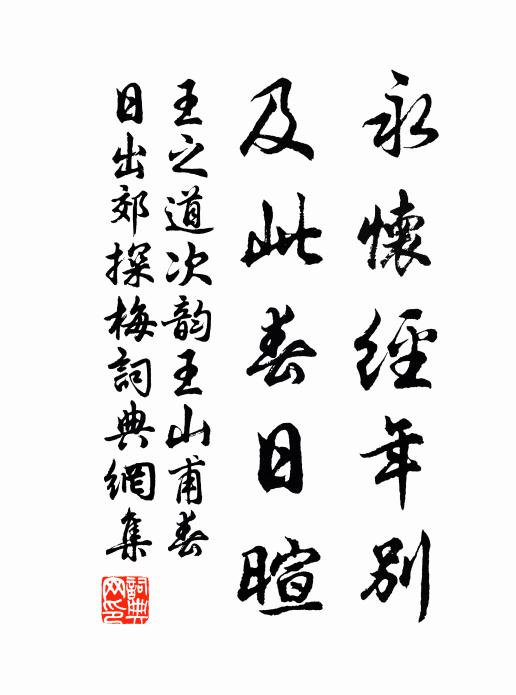 永懷經年别
及此春日暄
王之道次韵王山甫春
日出郊探梅詞典網集
詞典
网印